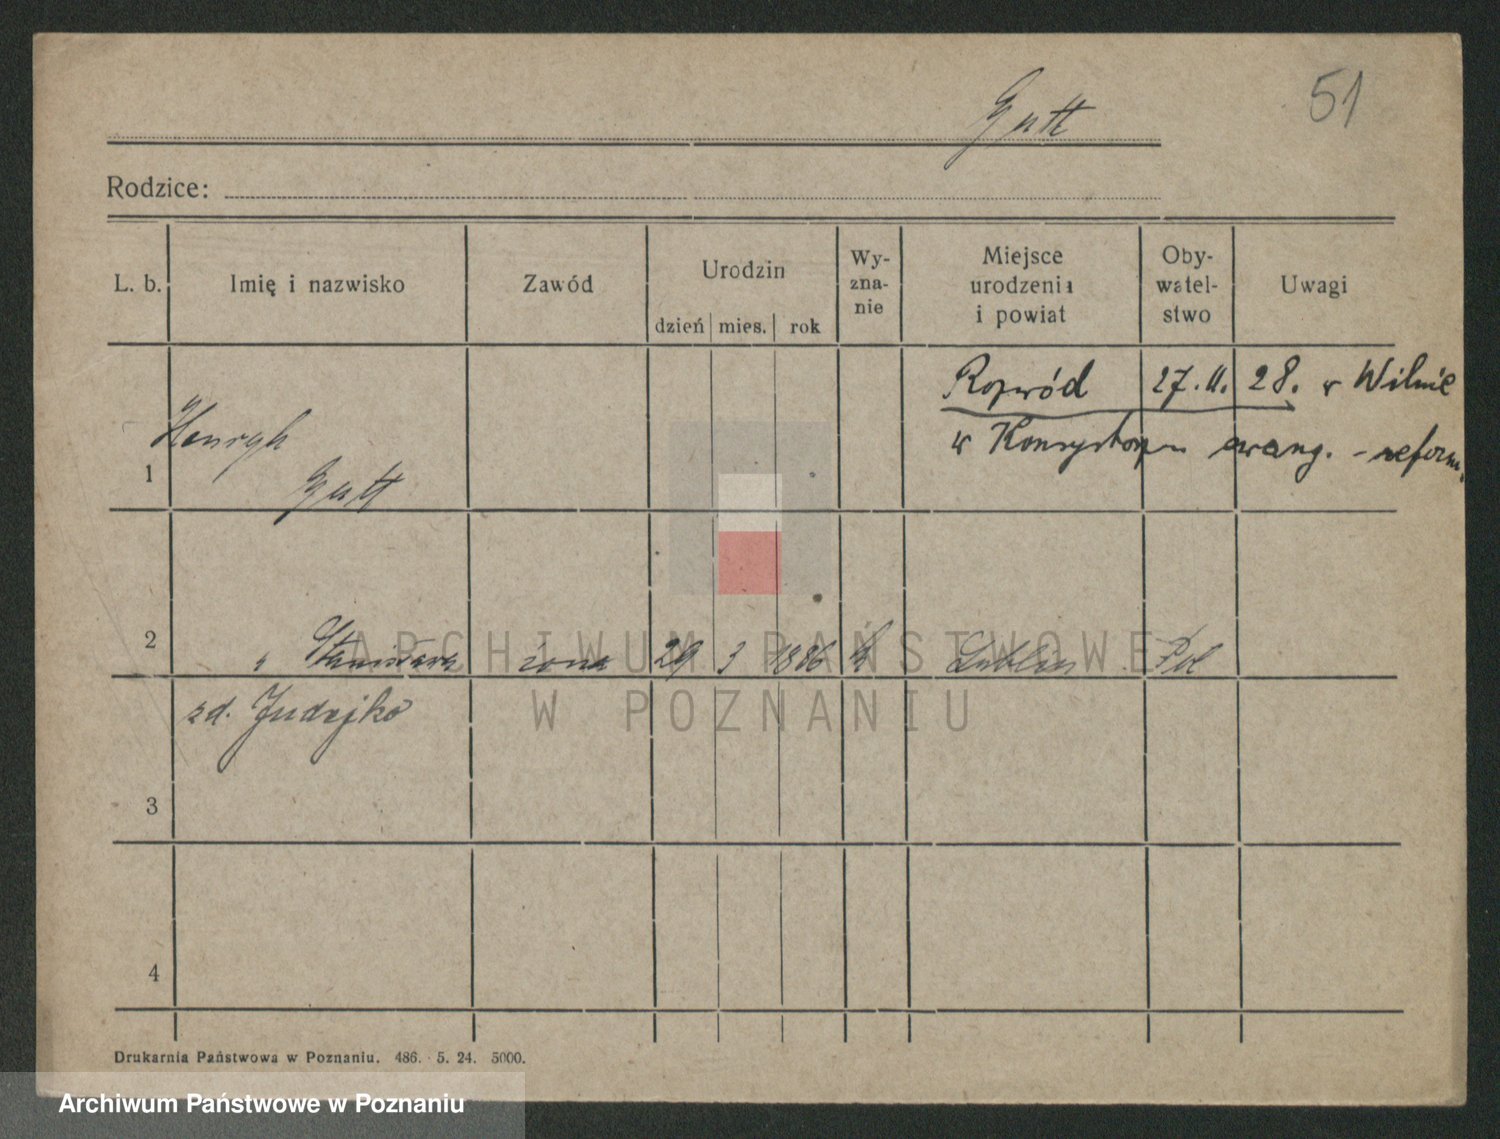 51
Gutt
Rodzice:
L. b.
Imię i nazwisko
Zawód
Urodzin
dzień mies. rok
Wy-
zna-
nie
Miejsce
urodzenia
i powiat
Oby-
watel-
stwo
Uwagi
Rozwód 27. II. 28. w Wilnie
w Konsystorzu ewang. - reform.
Henryk
1
Gutt
2
" Stanisława żona 29 3 1886 Lublin Pol
zd. Judejko
3
4
ARCHIWUM PAŃSTWOWE
W POZNANIU
Drukarnia Państwowa w Poznaniu. 486. 5. 24. 5000.
Archiwum Państwowe w Poznaniu